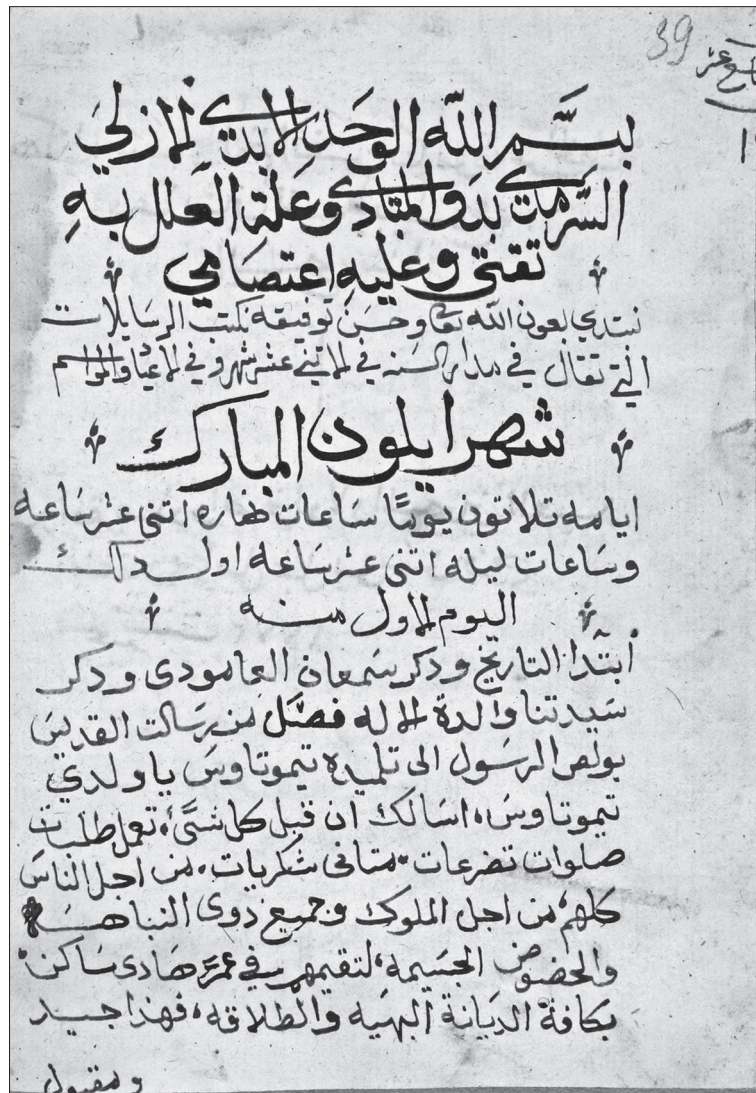 39
بسم الله الوحد الابدي الازلي
السرمدي بدو المبادي وعلة العلل به
تقتي وعليه اعتصامي
نبتدي بعون الله تعالى وحسن توفيقه نكتب الرسايلات
التي تقال في مدار السنه في الاتني عشر شهر وفي الاعياد والمواسم
شهر ايلون المبارك
ايامه تلاتون يومًا ساعات نهاره اتنى عشر ساعه
وساعات ليله اتنى عشر ساعه اول دلك
اليوم الاول منه
ابتدا التاريخ ودكر سمعان العامودى ودكر
سيدتنا والدة الاله فصل من رسالت القديس
بولص الرسول الى تلميده تيموتاوس يا ولدي
تيموتاوس، اسالك ان قبل كل شئ، تعمل طلبات
صلوات تضرعات متانى شكريات، من اجل الناس
كلهم، من اجل الملوك وجميع ذوى النباهه
والحضوض الجسيمه، لتقيمهم في عمر هادى ساكن،
بكافة الديانة البهيه والطلاقه، فهذا جيد
ومقبول